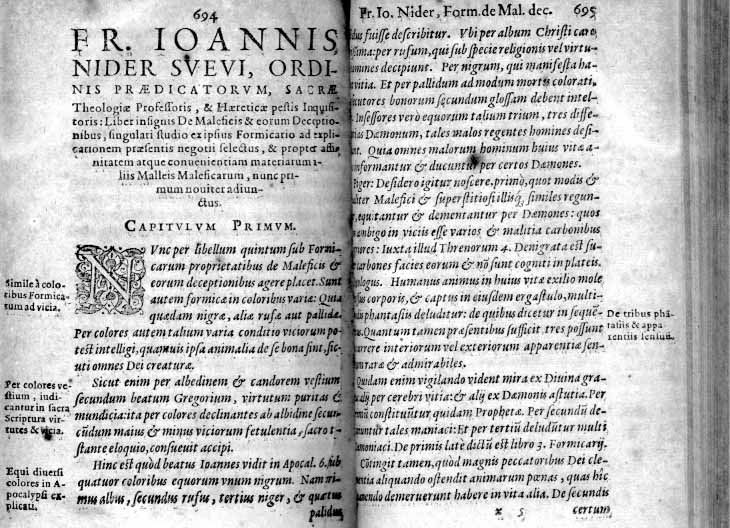 694
FR. IOANNIS
NIDER SVEVI, ORDI-
NIS PRÆDICATORVM, SACRÆ
Theologiæ Professoris, & Hæreticæ pestis Inquisi-
toris: Liber insignis De Maleficis & eorum Deceptio-
nibus, singulari studio ex ipsius Formicario ad expli-
cationem præsentis negotii selectus, & propter affi-
nitatem atque convenientiam materiarum i-
lliis Malleis Maleficarum, nunc pri-
mum noviter adiun-
ctus.
CAPITVLVM PRIMVM.
NVnc per libellum quintum sub Formi-
carum proprietatibus de Maleficis &
eorum deceptionibus agere placet. Sunt
autem formicæ in coloribus variæ: Quia
quædam nigræ, aliæ rufæ aut pallidæ
Per colores autem talium varia conditio viciorum po-
test intelligi, quamuis ipsa animalia de se bona sint, sic-
uti omnes Dei creaturæ.
Sicut enim per albedinem & candorem vestium
secundum beatum Gregorium, virtutum puritas &
mundicia: ita per colores declinantes ab albidine secun-
cũdum maius & minus viciorum fetulentia, sacro t-
stante eloquio, consueuit accipi.
Hinc est quòd beatus Ioannes vidit in Apocal. 6. sub
quatuor coloribus equorum vnum nigrum. Nam pri-
mus albus, secundus rufus, tertius niger, & quartus
palidus
Simile à colo-
ribus Formica-
rum ad vicia.
Per colores ve-
stium, indi-
cantur in sacra
Scriptura vir-
tutes & vicia.
Equi diuersi
colores in A-
pocalypsi ex-
plicati.
Fr. Io. Nider, Form. de Mal. dec. 695
idus fuisse describitur. Vbi per album Christi caro
sima: per rufum, qui sub specie religionis vel virtu-
omnes decipiunt. Per nigrum, qui manifesta ha-
vitia. Et per pallidum ad modum mortis colorati,
cutores bonorum secundum glossam debent intel-
Insessores verò equorum talium trium, tres diffe-
Dæmonum, tales malos regentes homines desi-
nt. Quia omnes malorum hominum huius vitæ a-
nformantur & ducuntur per certos Dæmones.
Piger: Desidero igitur noscere, primò, quot modis &
liter Malefici & superstitiosi illusi, similes regun-
equitantur & dementantur per Dæmones: quos
ambigo in viciis esse varios & malitia carbonibus
niores: Iuxta illud Threnorum 4. Denigrata est su-
carbones facies eorum & nõ sunt cogniti in plateis.
ologus. Humanus animus in huius vitæ exilio mole
sus corporis, & captus in eiusdem ergastulo, multi-
phantasiis deluditur: de quibus dicetur in sequē-
Quantum tamen præsentibus sufficit, tres possunt
currere interiorum vel exteriorum apparentiæ sen-
raræ & admirabiles.
Quidam enim vigilando vident mira ex Diuina gra-
alij per cerebri vitia: & alij ex Dæmonis astutia. Per
mũ constituũtur quidam Prophetæ. Per secundũ de-
untur tales maniaci: Et per tertiũ deludũtur multi
moniaci. De primis latè dictũ est libro 3. Formicarij.
Cõtingit tamen, quòd magnis peccatoribus Dei cle-
entia aliquando ostendit animarum pœnas, quas hîc
uendo demeruerunt habere in vita alia. De secundis
x 5
certum
De tribus phã-
tasiis & appa-
rentiis sensuũ.